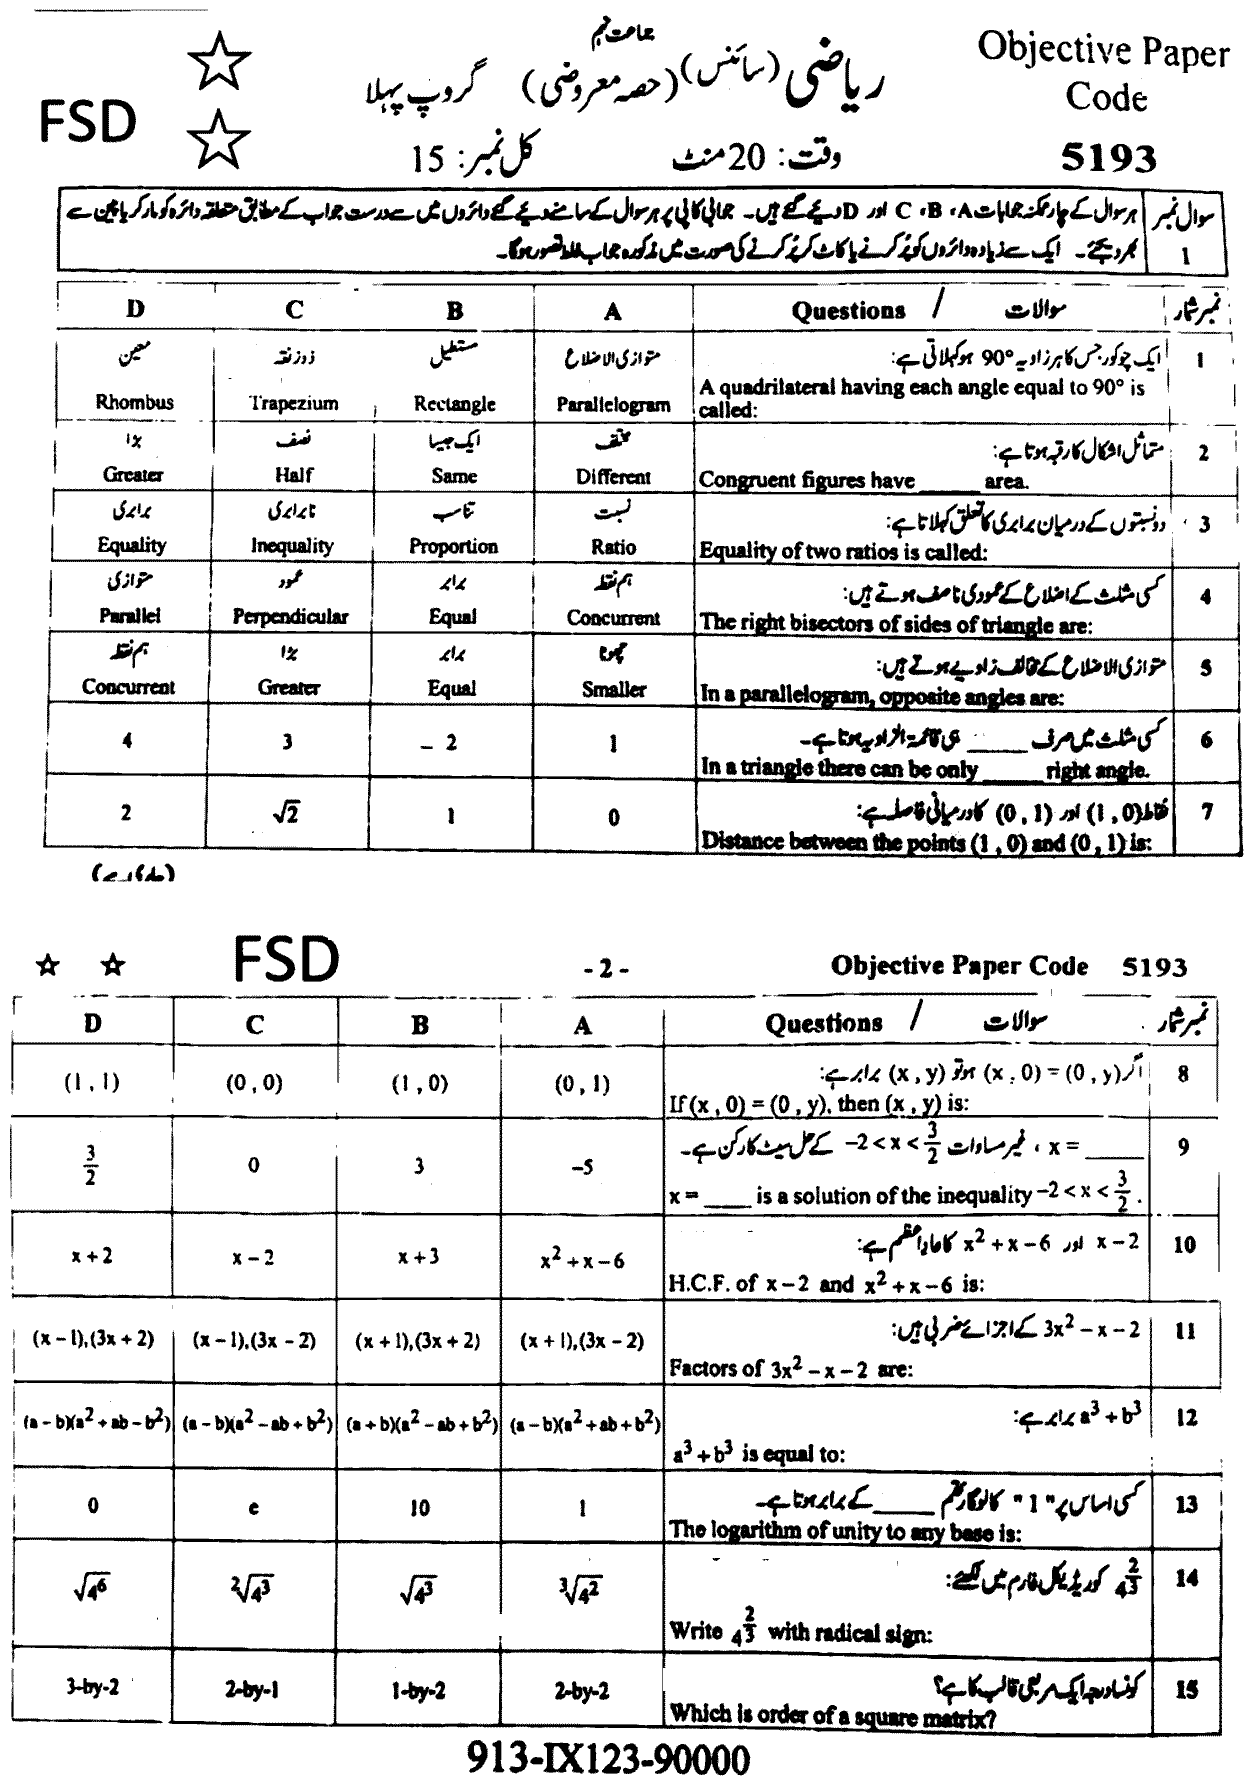 جماعت نہم
ریاضی (سائنس) (حصہ معروضی) گروپ پہلا
Objective Paper
Code
5193
FSD
وقت: 20 منٹ
کل نمبر: 15
سوال نمبر 1
ہر سوال کے چار ممکنہ جوابات A، B، C اور D دیئے گئے ہیں۔ جوابی کاپی پر ہر سوال کے سامنے دیئے گئے دائروں میں سے درست جواب کے مطابق متعلقہ دائرہ کو مارکر یا پین سے
بھر دیجئے۔ ایک سے زیادہ دائروں کو پُر کرنے یا کاٹ کر پُر کرنے کی صورت میں مذکورہ جواب غلط تصور ہوگا۔
D C B A Questions / سوالات نمبر شمار
معین ذوزنقہ مستطیل متوازی الاضلاع ایک چوکور جس کا ہر زاویہ 90° ہو کہلاتی ہے: 1
Rhombus Trapezium Rectangle Parallelogram A quadrilateral having each angle equal to 90° is
called:
بڑا نصف ایک جیسا مختلف متماثل اشکال کا رقبہ ہوتا ہے: 2
Greater Half Same Different Congruent figures have _____ area.
برابری نابرابری تناسب نسبت دو نسبتوں کے درمیان برابری کا تعلق کہلاتا ہے: 3
Equality Inequality Proportion Ratio Equality of two ratios is called:
متوازی عمود برابر ہم نقطہ کسی مثلث کے اضلاع کے عمودی ناصف ہوتے ہیں: 4
Parallel Perpendicular Equal Concurrent The right bisectors of sides of triangle are:
ہم نقطہ بڑا برابر چھوٹا متوازی الاضلاع کے مخالف زاویے ہوتے ہیں: 5
Concurrent Greater Equal Smaller In a parallelogram, opposite angles are:
4 3 2 1 کسی مثلث میں صرف _____ ہی قائمۃ الزاویہ ہوتا ہے۔ 6
In a triangle there can be only _____ right angle.
2 √2 1 0 نقاط (1 , 0) اور (0 , 1) کا درمیانی فاصلہ ہے: 7
Distance between the points (1 , 0) and (0 , 1) is:
(جاری ہے)
FSD - 2 - Objective Paper Code 5193
D C B A Questions / سوالات نمبر شمار
(1 , 1) (0 , 0) (1 , 0) (0 , 1) اگر (x , 0) = (0 , y) ہو تو (x , y) برابر ہے: 8
If (x , 0) = (0 , y), then (x , y) is:
3/2 0 3 –5 x = _____ ، غیر مساوات –2 < x < 3/2 کے حل سیٹ کا رکن ہے۔ 9
x = ____ is a solution of the inequality –2 < x < 3/2 .
x + 2 x – 2 x + 3 x² + x – 6 x – 2 اور x² + x – 6 کا عاد اعظم ہے: 10
H.C.F. of x – 2 and x² + x – 6 is:
(x – 1),(3x + 2) (x – 1),(3x – 2) (x + 1),(3x + 2) (x + 1),(3x – 2) 3x² – x – 2 کے اجزائے ضربی ہیں: 11
Factors of 3x² – x – 2 are:
(a – b)(a² + ab – b²) (a – b)(a² – ab + b²) (a + b)(a² – ab + b²) (a – b)(a² + ab + b²) a³ + b³ برابر ہے: 12
a³ + b³ is equal to:
0 e 10 1 کسی اساس پر "1" کا لوگارتھم _____ کے برابر ہوتا ہے۔ 13
The logarithm of unity to any base is:
√4⁶ ²√4³ √4³ ³√4² 4^(2/3) کو ریڈیکل فارم میں لکھئے: 14
Write 4^(2/3) with radical sign:
3-by-2 2-by-1 1-by-2 2-by-2 کونسا درجہ ایک مربعی قالب کا ہے؟ 15
Which is order of a square matrix?
913-IX123-90000